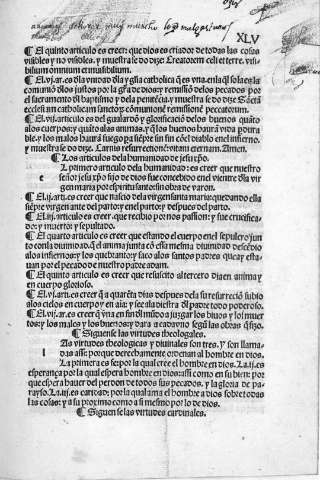 XLV
¶ El quinto articulo es creer: que dios es criador de todas las cosas
visibles y no visibles. y muestra se do dize: Creatorem celi et terre. visi
bilium omnium et inuisibilium.
¶ El .vi. articulo es dla vnidad dla yglia catholica q̃ es vna. enla q̃l sola es la
comunió dlos justos por la gr̃a de dios: y remissió delos pecados por
el sacramento dl baptismo y dela penitẽcia/ y muestra se do dize: Sanctã
ecclesiam catholicam sanctorum comunionẽ remissionẽ peccatorum.
¶ El .vij. articulo es del gualardõ y glorificació delos buenos quáto
alos cuerpos: y quáto alas animas. y q̃ los buenos haurã vida pdura
ble: y los malos haurã fuego pa siẽpre sin fin cõel diablo enel infierno.
y muestra se do dize. Carnis resurrectionẽ vitam eternam. Amen.
¶ Los articulos dela humanidad de jesu xp̃o.
L primero articulo dela humanidad: es creer que nuestro
e señor jesu xp̃o hijo de dios fue concebido enel vientre dla vir
gen maria por espiritu santo: sin obra de varon.
¶ El .ij. arti. es creer que nascio dela virgen santa maria: quedando ella
siẽpre virgen ante del parto: y enel parto: y despues del parto.
¶ El .iij. articulo es creer. que recibio por nos passion: y fue crucifica
do: y muerto: y sepultado.
¶ El quarto articulo es creer que estando el cuerpo enel sepulcro jun
to conla diuinidad. q̃ el anima juntã cõ essa mesma diuinidad descẽdio
alos infiernos: y los quebranto: y saco alos santos padres que ay esta-
uan por el pecado de nuestro padre adam.
¶ El quinto articulo es creer que resuscito al tercero dia en anima y
en cuerpo glorioso.
¶ El .vj. arti. es creer q̃ a quarẽta dias despues dela su resurreció subio
alos cielos en cuerpo y en aĩa: y see ala diestra dl padre todo poderoso.
¶ El .vij. ar. es creer q̃ verna en fin dl mũdo a juzgar los biuos y los muer
tos: y los malos y los buenos: y dara a cada vno segũ las obras q̃ fizo.
¶ Siguense las virtudes theologales.
As virtudes theologicas y diuinales son tres. y son llama-
l das assi: por que derechamente ordenan al hombre en dios.
La primera es fe: por la qual cree el hombre en dios. La .ij. es
esperança por la qual espera el hombre en dios: assi como en su bien: por
que espera hauer del perdon de todos sus pecados. y la gloria de pa-
rayso. La .iij. es caridad: por la qual ama el hombre a dios sobre todas
las cosas: y a su proximo como a si mesmo por lo de dios.
¶ Siguen se las virtudes cardinales.